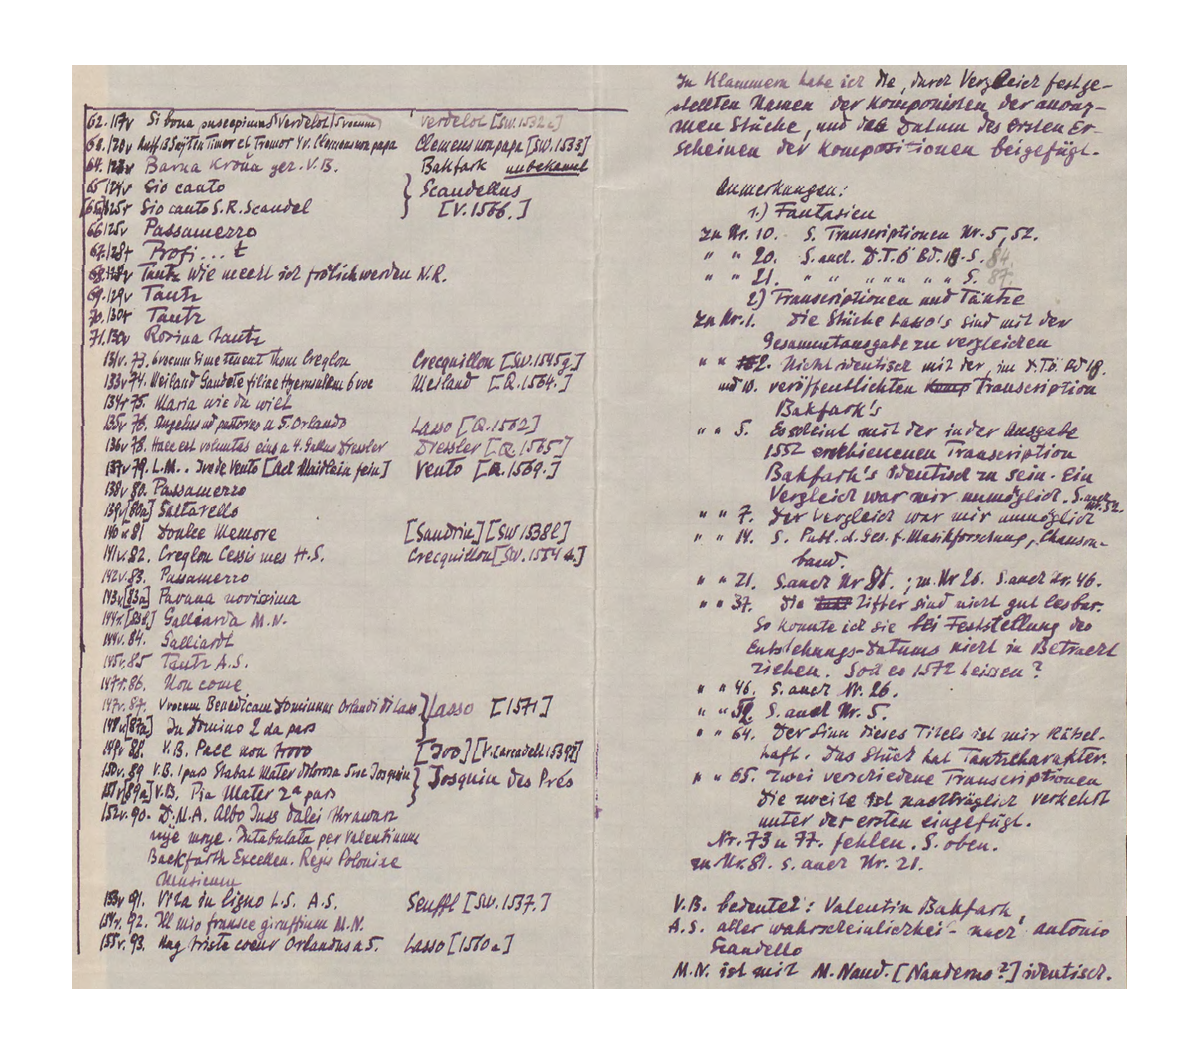 62. 117v Si bona suscepimus Verdelot 5 vocum Verdelot [SW. 1532c]
63. 120v Timor et Tremor 4 v. Clemens non papa Clemens non papa [SW. 1553]
64. Barna ger. V.B. Bakfark unbekannt
65 124v Sio canto } Scandellus
[65a] 125v Sio canto S.R. Scandel [V. 1566.]
66 125v Passamezzo
67. 128 Profi...t
68. 128v Tantz wie mecht ich frölich werden N.R.
69. 129v Tantz
70. 130r Tantz
71. 130v Rosina tantz
131v. 73. 6 vocum Dime tenent Thom Creqlon Crecquillon [SW. 1545g]
133v 74. Weiland Gaudete filiae Hyerusalem 6 voc Weiland [Q. 1564.]
134r 75. Maria wie du wilt
135v 76. Angelus ad pastores a 5. Orlando Lasso [Q. 1562]
136v 78. Haec est voluntas eius a 4. Gallus Dressler Dressler [Q. 1565]
137v 79. L.M.. Ivo de Vento [Ach Maidlein fein] Vento [Q. 1569.]
138v 80. Passamezzo
139v [80a] Saltarello
140v 81 Doulce Memore [Sandrin] [SW 1538l]
141v. 82. Creqlon Cessis mes H.S. Crecquillon [SW. 1554 a.]
142v. 83. Passamezzo
143v [83a] Pavana novissima
144r. [83b] Galliarda M.N.
144v. 84. Galliardt
145v. 85 Tantz A.S.
147r. 86. Non come
147v. 87. 4 vocum Benedicam Dominum Orlandi Di Lasso } Lasso [1571]
148v [87a] In Domino 2da pars
149v 88. V.B. Pace non trovo [Ivo] [V. Arcadelt 1539]
150v. 89 V.B. 1 pars Stabat Mater dolorosa 5 voc Josquin } Josquin des Prés
151v [89a] V.B. Pia Mater 2a pars
152v. 90. D.M.A. Albo Juss dalei
nije moye. Intabulata per Valentinum
Backfarth Excellen. Regis Poloniae
Musicum
153v 91. Vita in ligno L.S. A.S. Senffl [SW. 1537.]
154v. 92. Il mio M.N.
155v. 93. triste coeur Orlandus a 5. Lasso [1560a]
In Klammern habe ich die, durch Vergleich festge-
stellten Namen der Komponisten der anony-
men Stücke, und das Datum des Ersten Er-
scheinen der Kompositionen beigefügt.
Anmerkungen:
1.) Fantasien
zu Nr. 10. S. Transcriptionen Nr. 5, 52.
" " 20. S. auch D.T.Ö Bd. 18. S. 84.
" " 21. " " " " " " S. 87.
2) Transcriptionen und Täntze
zu Nr. 1. Die Stücke Lasso's sind mit der
Gesammtausgabe zu vergleichen
" " 2. Nicht identisch mit der, im D.T.Ö. Bd 18.
und 10. veröffentlichten Transcription
Bakfark's
" " 5. Es scheint mit der in der Ausgabe
1552 erschienenen Transcription
Bakfark's identisch zu sein. Ein
Vergleich war mir unmöglich. S. auch Nr. 52.
" " 7. Der Vergleich war mir unmöglich
" " 14. S. Publ. d. Ges. f. Musikforschung, Chanson-
band.
" " 21. S. auch Nr 81. ; zu Nr 26. S. auch Nr. 46.
" " 37. Die Ziffer sind nicht gut lesbar.
So konnte ich sie bei Feststellung des
Entstehungs-Datums nicht in Betracht
ziehen. Soll es 1572 heissen?
" " 46. S. auch Nr. 26.
" " 52. S. auch Nr. 5.
" " 64. Der Sinn dieses Titels ist mir Rätsel-
haft. Das Stück hat Tantzcharakter.
" " 65. Zwei verschiedene Transcriptionen
Die zweite ist nachträglich verkehrt
unter der ersten eingefügt.
Nr. 73 u 77. fehlen. S. oben.
zu Nr. 81. S. auch Nr. 21.
V.B. bedeutet: Valentin Bakfark,
A.S. aller wahrscheinlichkei- nach Antonio
Scandello
M.N. ist mit M. Naud. [Nauderno?] identisch.